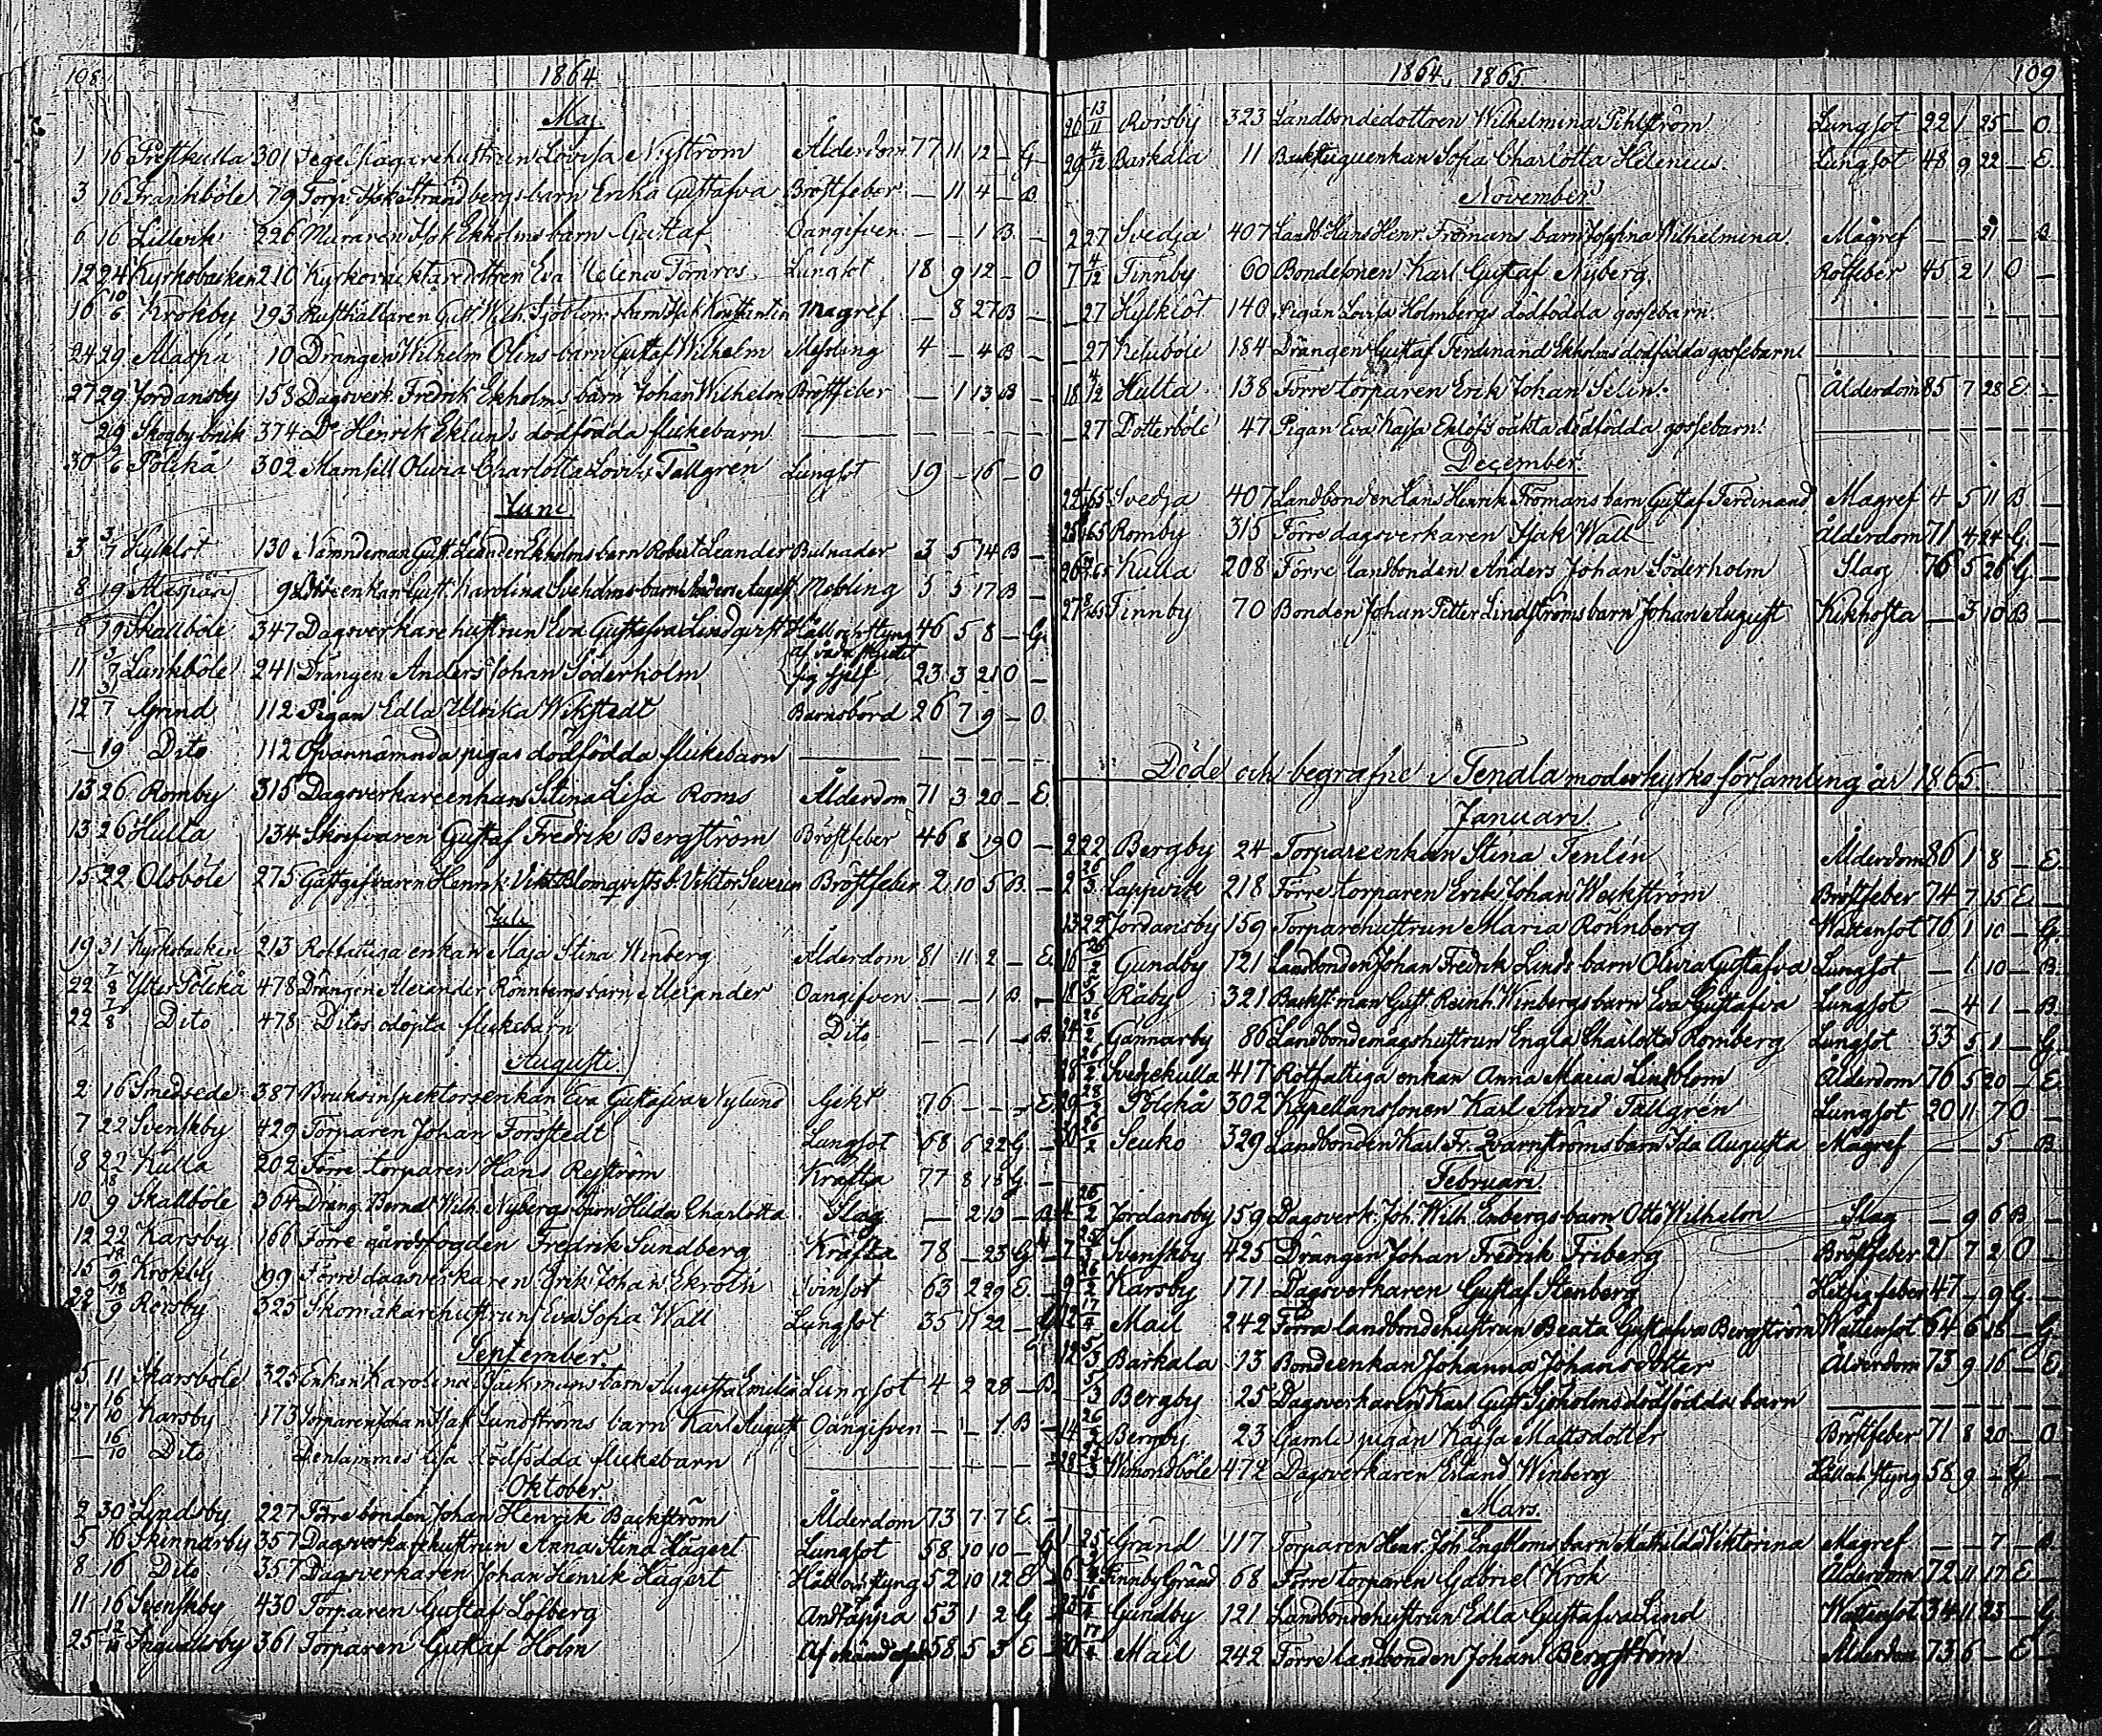 108. 1864.
Maj.
1 16 Prestkulla 301 Tegelslagarehustrun Lovisa Nyström Ålderdom 77 11 12 — G.
3 16 Frankböle 79 Torp. Isak Strandbergs barn Erika Gustafva Bröstfeber — 11 4 — B.
6 16 Lillvik 226 Muraren Isak Ekholms barn Gustaf Oangifven — — 1 B. —
12 24 Kyrkobacken 210 Kyrkovaktaredottren Eva Helena Törnros Lungsot 18 9 12 — O
16 10/6 Krokby 193 Rusthållaren Gust. Wilh. Sjöbloms barn Isak Konstantin Magref — 8 27 B —
24 29 Maspä 10 Drängen Wilhelm Olins barn Gustaf Wilhelm Messling 4 — 4 B —
27 29 Jordansby 158 Dagsverk. Fredrik Ekholms barn Johan Wilhelm Bröstfeber — 1 13 B —
29 Skogby bruk 374 Do Henrik Eklunds dödfödda flickebarn
30 9/6 Pölckå 302 Mamsell Olivia Charlotta Lovisa Tallgrén Lungsot 19 — 16 — O
Juni.
3 3/7 Hylklot 130 Nämndeman Gust. Leander Ekholms barn Robert Leander Bulnader 3 5 14 B —
8 19 Maspää 9 enkan Gust. Karolina barn Anders August Messling 5 5 17 B —
8 19 Skallböle 347 Dagsverkarehustrun Eva Gustafva Lindqvist Håll och styng 46 5 8 — G.
11 3/7 Lunkböle 241 Drängen Anders Johan Söderholm af våda skjutit sig sjelf 23 3 21 O —
12 3/7 Gränd 112 Pigan Edla Ulrika Wikstedt Barnsbörd 26 7 9 — O
— 19 Dito 112 Ofvannämnda pigas dödfödda flickebarn
13 26 Romby 315 Dagsverkareenkan Stina Lisa Roms Ålderdom 71 3 20 — E.
13 26 Hulta 134 Skrifvaren Gustaf Fredrik Bergström Bröstfeber 46 8 19 O —
15 22 Olsböle 275 Gästgifvaren Henrik Vikt. Blomqvists b. Viktor Severin Bröstfeber 2 10 5 B. —
Juli.
19 31 Kyrkobacken 213 Rotfattiga enkan Maja Stina Winberg Ålderdom 81 11 2 — E.
22 7/8 Ytter Pölckå 478 Drängen Alexander Rönnbergs barn Alexander Oangifven — — 1 B. —
22 7/8 Dito 478 Ditos odöpta flickebarn Dito — — 1 — B.
Augusti.
2 16 Smedsede 387 Bruksinspektorsenkan Eva Gustafva Nylund Gikt 76 — — — E.
7 22 Svenskby 429 Torparen Johan Forstedt Lungsot 68 6 22 G. —
8 22 Kulla 202 Förre torparen Hans Reström Kräfta 77 8 18 G. —
10 18/9 Skallböle 364 Dräng. Bernd. Wilh. Nybergs barn Hilda Charlotta Slag — 2 13 — B.
12 22 Karsby 166 Förre gårdsfogden Fredrik Sundberg Kräfta 78 — 23 G. —
15 18/9 Krokby 199 Förre dagsverkaren Erik Johan Ekroth Svinsot 63 2 29 E. —
22 18/9 Rörsby 325 Skomakarehustrun Eva Sofia Wall Lungsot 35 11 22 — G.
September.
5 11 Skarsböle 325 Enkan Karolina Backmans barn Augusta Emilia Lungsot 4 2 28 — B.
27 16/10 Karsby 173 Torparen Johan Isak Lundströms barn Karl August Oangifven — — 1 B —
— 16/10 Dito Densammes dödfödda flickebarn
Oktober.
2 30 Lindsby 227 Förre bonden Johan Henrik Backström Ålderdom 73 7 7 E. —
5 16 Skinnarby 357 Dagsverkarehustrun Anna Stina Hagert Lungsot 58 10 10 — G.
8 16 Dito 357 Dagsverkaren Johan Henrik Hagert Håll och styng 52 10 12 E —
11 16 Svenskby 430 Torparen Gustaf Löfberg Andtäppa 53 1 2 G —
25 12/11 Ingvallsby 361 Torparen Gustaf Holm 58 5 3 E —
1864. 1865. 109
26 13/11 Rörsby 323 Landbondedottren Wilhelmina Pihlström Lungsot 22 1 25 — O.
29 4/12 Barkala 11 Enkan Sofia Charlotta Helenius Lungsot 48 9 22 — E.
November.
2 27 Svedja 407 Landb. Hans Henr. Fromans barn Josefina Wilhelmina Magref — — 21 — B
7 4/12 Finnby 60 Bondesonen Karl Gustaf Nyberg Rötfeber 45 2 1 O —
— 27 Hylklot 140 Pigan Lovisa Holmbergs dödfödda gossebarn
— 27 184 Drängen Gustaf Ferdinand Ekholms dödfödda gossebarn
18 4/12 Hulta 138 Förre torparen Erik Johan Selin Ålderdom 85 7 28 E. —
— 27 Dotterböle 47 Pigan Eva Kajsa Enlöfs oäkta dödfödda gossebarn
December.
22 1/65 Svedja 407 Landbonden Hans Henrik Fromans barn Gustaf Ferdinand Magref 4 5 11 B —
25 65 Romby 315 Förre dagsverkaren Isak Wall Ålderdom 71 4 24 G. —
26 65 Kulla 208 Förre landbonden Anders Johan Söderholm Slag 76 5 26 G. —
27 65 Finnby 70 Bonden Johan Petter Lindströms barn Johan August Kikhosta — 3 10 B —
Döde och begrafne i Tenala moderkyrkoförsamling år 1865.
Januari.
2 22 Bergby 24 Torpareenkan Stina Tenlén Ålderdom 86 1 8 — E.
2 26/3 Lappvik 218 Förre torparen Erik Johan Weckström Bröstfeber 74 7 15 E —
13 22 Jordansby 159 Torparehustrun Maria Rönnberg Wattensot 70 1 10 — G.
16 26/2 Gundby 121 Landbonden Johan Fredrik Linds barn Olivia Gustafva Lungsot — 1 10 — B.
18 5/3 Råby 321 Backst.man Gust. Reinh. Winbergs barn Eva Gustafva Lungsot — 4 1 — B.
24 26/2 Gännarby 86 Landbondemågshustrun Engla Charlotta Romberg Lungsot 33 5 1 — G.
28 26/2 Svedjekulla 417 Rotfattiga enkan Anna Maria Lindblom Ålderdom 76 5 20 — E.
29 Pölckå 302 Kapellanssonen Karl Arvid Tallgrén Lungsot 20 11 7 O —
30 26/2 Seuko 329 Landbonden Karl Fr. Qvarnströms barn Ida Augusta Magref — — 5 — B.
Februari.
4 26/2 Jordansby 159 Dagsverk. Joh. Wilh. Enbergs barn Otto Wilhelm Slag — 9 6 B —
7 Svenskby 425 Drängen Johan Fredrik Friberg Bröstfeber 21 7 2 O —
9 Karsby 171 Dagsverkaren Gustaf Stenberg Hetsig feber 47 — 9 G. —
12 17/4 Mail 242 Förra landbondehustrun Beata Gustafva Bergström Wattensot 64 6 18 — G.
12 5/3 Barkala 13 Bondeenkan Johanna Johansdotter Ålderdom 73 9 16 — E.
— 5/3 Bergby 25 Dagsverkaren Karl Gust. Sjöholms dödfödda barn
14 26/2 Bergby 23 Gamla pigan Kajsa Mattsdotter Bröstfeber 71 8 20 — O
28 Wimondböle 472 Dagsverkaren Erland Winberg Håll och styng 58 9 — G —
Mars.
1 25/3 Gränd 117 Torparen Henr. Joh. Engbloms barn Mathilda Viktorina Magref — — 7 — B.
6 Finnby Gränd 68 Förre torparen Gabriel Krok Ålderdom 72 11 17 E —
23 16/4 Gundby 121 Landbondehustrun Edla Gustafva Lind Wattensot 34 11 23 — G
30 17/4 Mail 242 Förre landbonden Johan Bergström Ålderdom 73 6 — E —